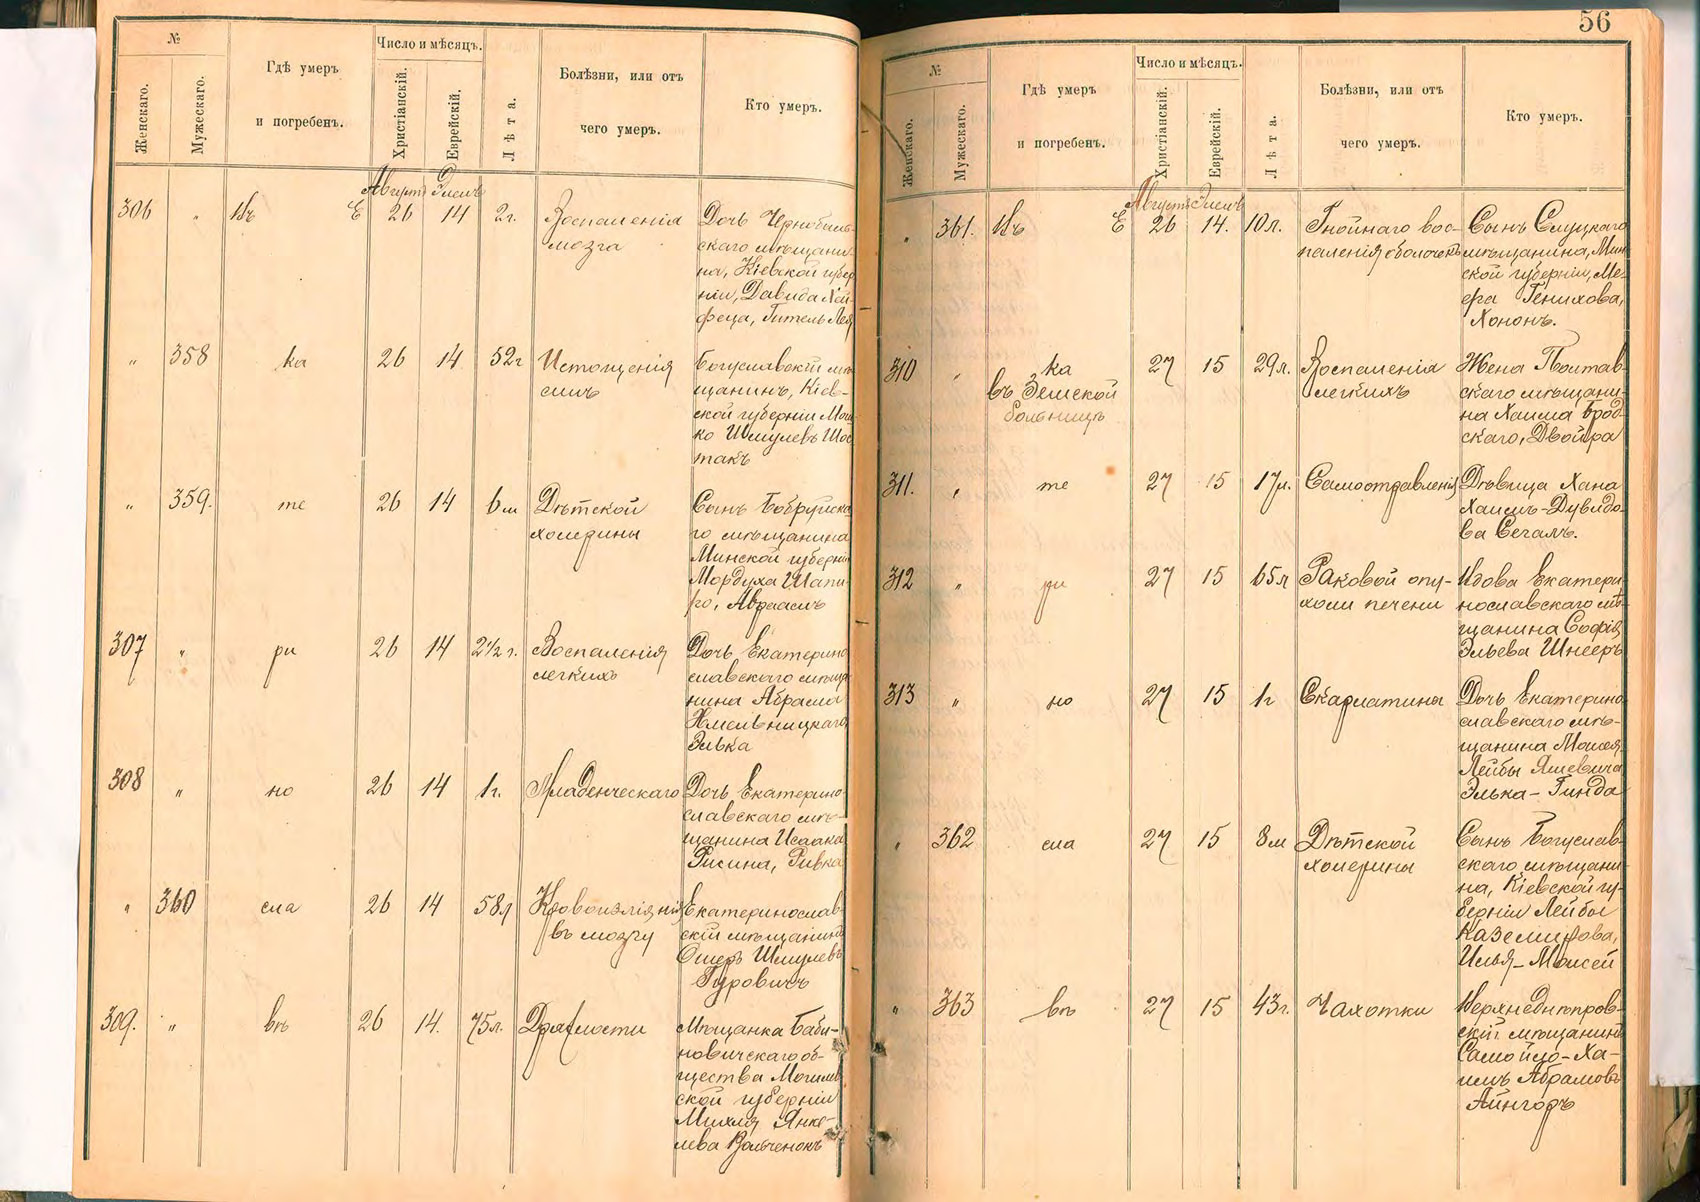 №
Женскаго.
Мужескаго.
Гдѣ умеръ
и погребенъ.
Число и мѣсяцъ.
Христіанскій.
Еврейскій.
Лѣта.
Болѣзни, или отъ
чего умеръ.
Кто умеръ.
Августъ Элемъ
306 " Въ Е 26 14 2 г. Воспаленія
мозга
Дочь Чернобыль-
скаго мѣщани-
на, Кіевской губер-
ніи, Давида Хей-
феца, Гитель Лея
" 358 ка 26 14 52 г Истощенія
силъ
Богуславскій мѣ-
щанинъ, Кіев-
ской губерніи Мош-
ко Шмулевъ Шос-
такъ
" 359. те 26 14 6 м Дѣтской
холерины
Сынъ Бобруйска-
го мѣщанина
Минской губерніи
Мордуха Шапи-
ро, Абрамъ
307 " ри 26 14 2½ г. Воспаленія
легкихъ
Дочь Екатерино-
славскаго мѣща-
нина Абрама
Хмельницкаго,
Элька
308 " но 26 14 1 г. Младенческаго
Дочь Екатерино-
славскаго мѣ-
щанина Исаака
Рисина, Ривка
" 360 сла 26 14 58 л Кровоизліянія
въ мозгу
Екатеринослав-
скій мѣщанинъ
Ошеръ Шмулевъ
Гуровичъ
309. " вѣ 26 14. 75 л. Дряхлости
Мѣщанка Баби-
новичскаго об-
щества Могилев-
ской губерніи
Михля Янке-
лева Вольченокъ
56
№
Женскаго.
Мужескаго.
Гдѣ умеръ
и погребенъ.
Число и мѣсяцъ.
Христіанскій.
Еврейскій.
Лѣта.
Болѣзни, или отъ
чего умеръ.
Кто умеръ.
Августъ Элемъ
" 361. Въ Е 26 14. 10 л. Гнойнаго вос-
паленія оболочекъ
Сынъ Слуцкаго
мѣщанина, Мин-
ской губерніи, Ме-
ера Генихова,
Хононъ.
310 " ка
въ Земской
больницѣ
27 15 29 л. Воспаленія
легкихъ
Жена Полтав-
скаго мѣщани-
на Хаима Брод-
скаго, Двойра
311. " те 27 15 17 л. Самоотравленія
Дѣвица Хана
Хаимъ-Дувидо-
ва Сегалъ.
312 " ри 27 15 65 л Раковой опу-
холи печени
Вдова Екатери-
нославскаго мѣ-
щанина Софія
Эльева Шнееръ
313 " но 27 15 1 г Скарлатины
Дочь Екатерино-
славскаго мѣ-
щанина Мошея
Лейбы Яшевича
Элька-Гинда
" 362 сла 27 15 8 м Дѣтской
холерины
Сынъ Богуслав-
скаго мѣщани-
на, Кіевской гу-
берніи Лейбы
Каземирова,
Илья-Моисей
" 363 вѣ 27 15 43 г. Чахотки
Верхнеднѣпров-
скій мѣщанинъ
Самойло-Ха-
имъ Абрамовъ
Айнгоръ